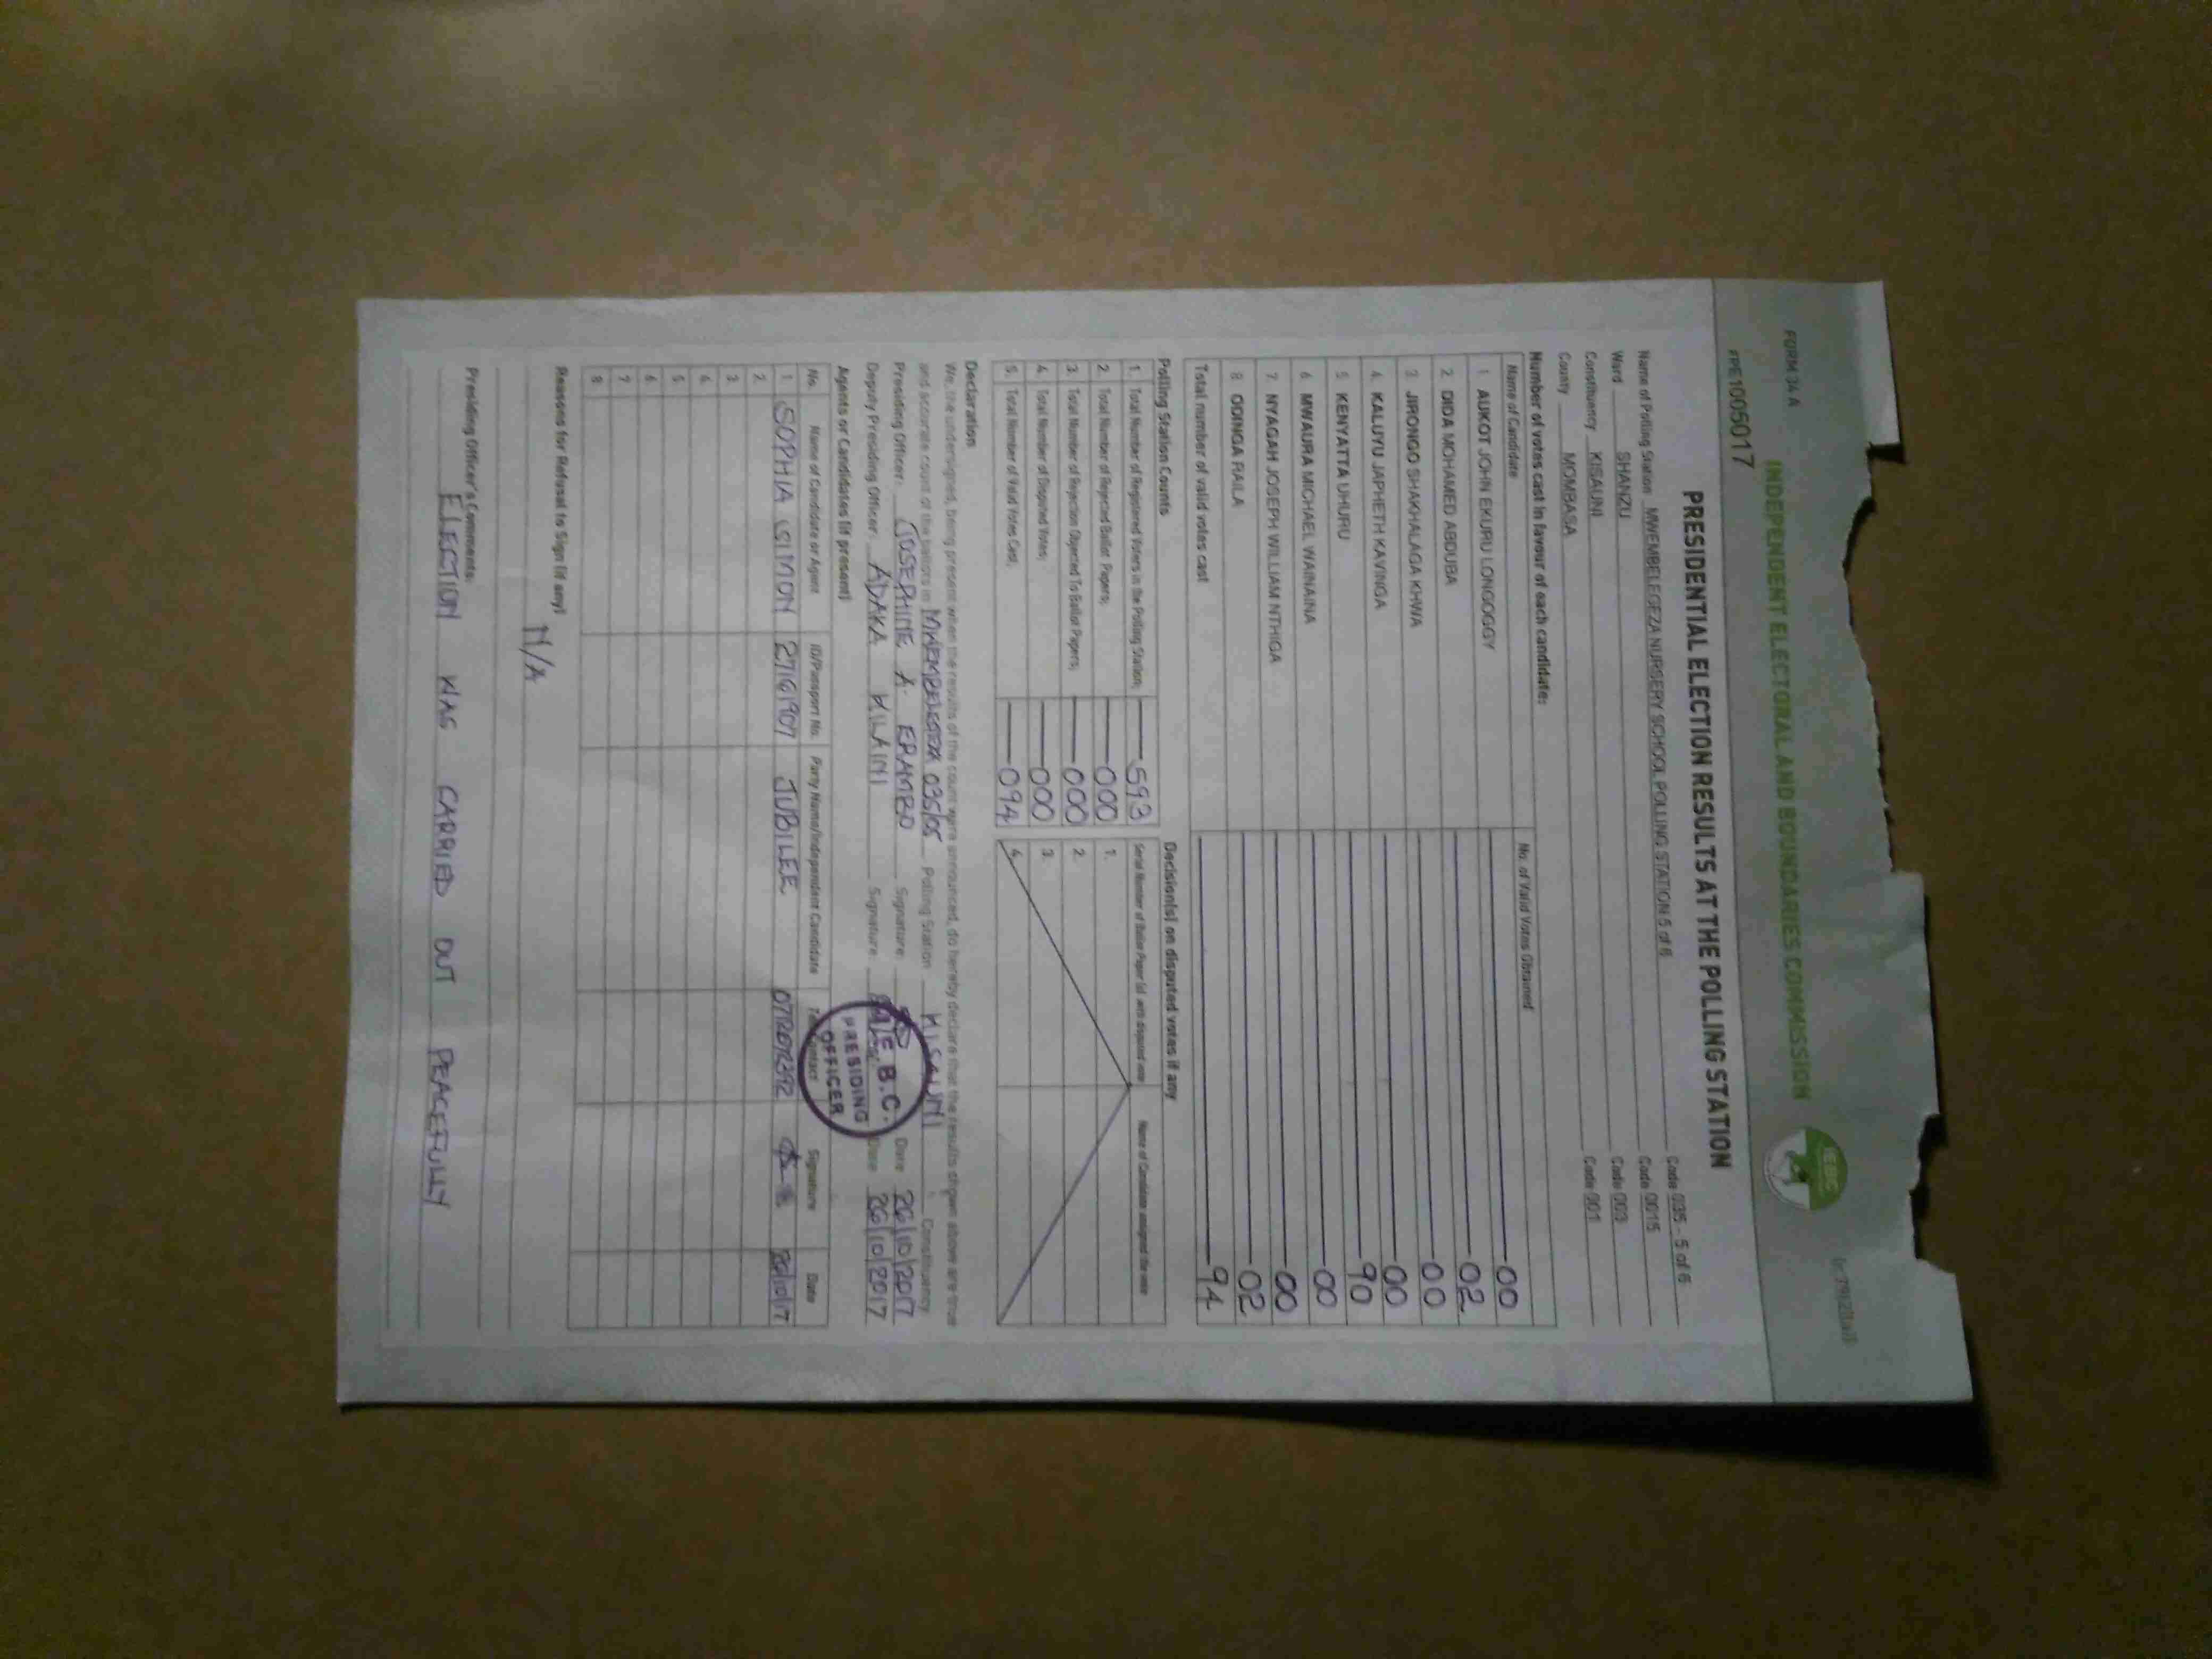 FORM 34 A
INDEPENDENT ELECTORAL AND BOUNDARIES COMMISSION
IEBC
PRESIDENTIAL ELECTION RESULTS AT THE POLLING STATION
Name of Polling Station MWEMBELEGEZA NURSERY SCHOOL POLLING STATION 5 of 6 Code 035 - 5 of 6
Ward SHANZU Code 0015
Constituency KISAUNI Code 003
County MOMBASA Code 001
Number of votes cast in favour of each candidate:
Name of Candidate No. of Valid Votes Obtained
1 AUKOT JOHN EKURU LONGOGGY 00
2. DIDA MOHAMED ABDUBA 02
3 JIRONGO SHAKHALAGA KHWA 00
4. KALUYU JAPHETH KAVINGA 00
5 KENYATTA UHURU 90
6 MWAURA MICHAEL WAINAINA 00
7. NYAGAH JOSEPH WILLIAM NTHIGA 00
8 ODINGA RAILA 02
Total number of valid votes cast 94
Polling Station Counts Decision(s) on disputed votes if any
1. Total Number of Registered Voters in the Polling Station; 593 Serial Number of Ballot Paper (s) with disputed vote Name of Candidate assigned the vote
2. Total Number of Rejected Ballot Papers; 000 1.
3. Total Number of Rejection Objected To Ballot Papers; 000 2.
4. Total Number of Disputed Votes; 000 3.
5. Total Number of Valid Votes Cast; 094 4.
Declaration
We, the undersigned, being present when the results of the count were announced, do hereby declare that the results shown above are true
and accurate count of the ballots in 035/05 Polling Station KISAUNI Constituency
Presiding Officer: JOSEPHINE A. Signature Date 26/10/2017
Deputy Presiding Officer: ADAKA KILAINI Signature Date 26/10/2017
I.E.B.C.
PRESIDING
OFFICER
Agents or Candidates (if present)
No. Name of Candidate or Agent ID/Passport No. Party Name/Independent Candidate Tel. Contact Signature Date
1 SOPHIA SIMON JUBILEE 26/10/17
2
3
4
5
6
7
8
Reasons for Refusal to Sign (if any)
N/A
Presiding Officer's Comments:
ELECTION WAS CARRIED OUT PEACEFULLY